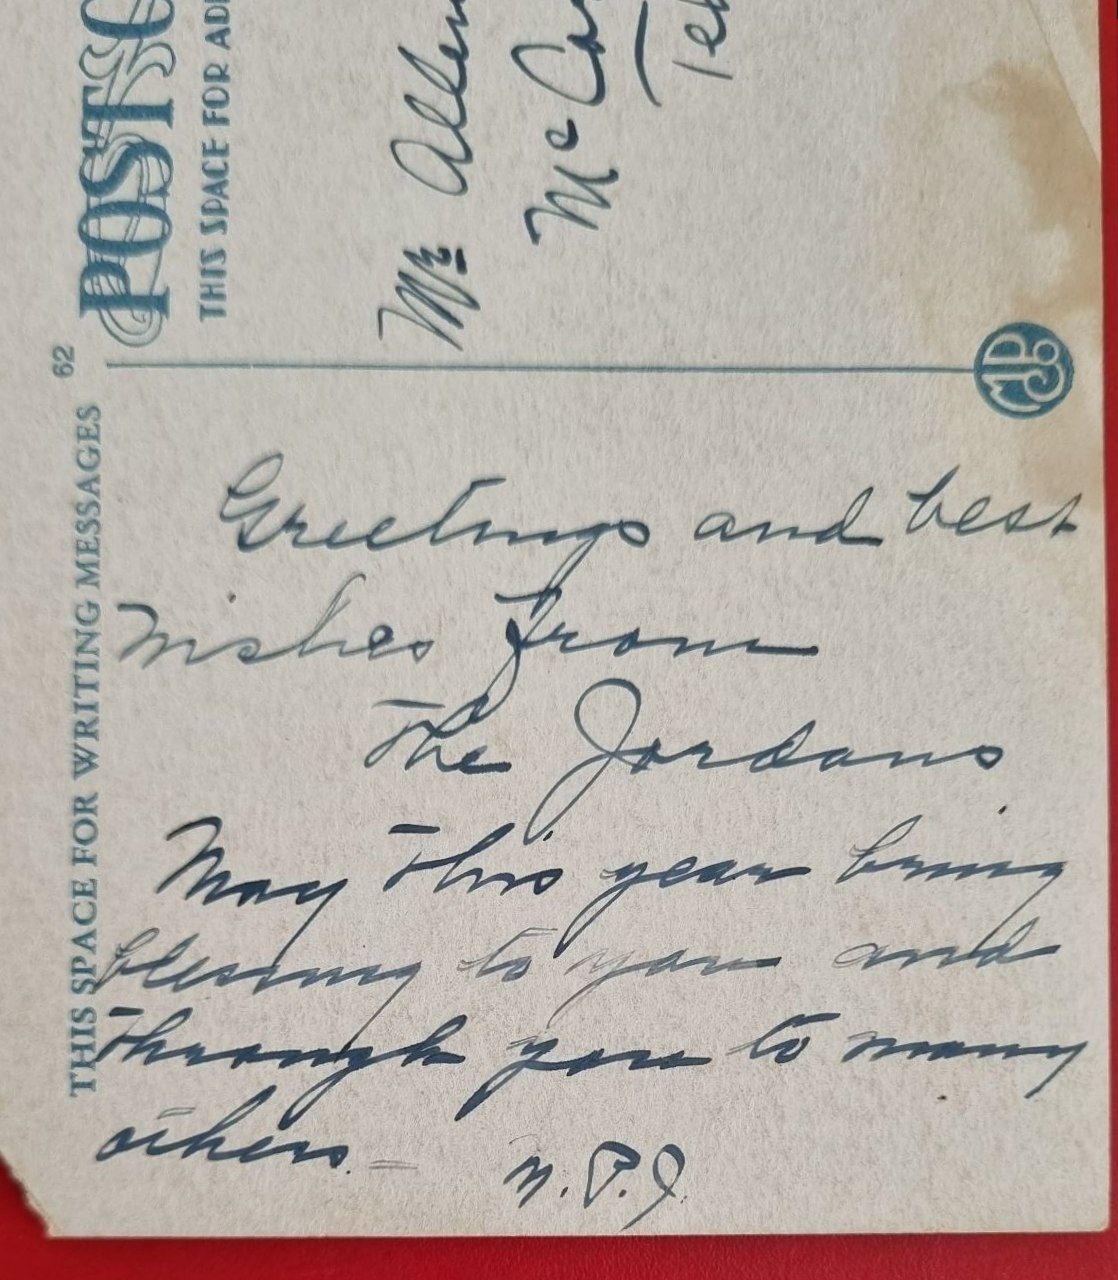 62
POST
THIS SPACE FOR
THIS SPACE FOR WRITING MESSAGES
Mr
Greetings and best
wishes from
The Jordans
May this year bring
blessing to you and
through you to many
others. —
N.P.J.